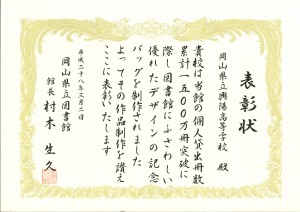 表彰状
岡山県立興陽高等学校 殿
貴校は当館の個人貸出冊数
累計一五〇〇万冊突破に
際し図書館にふさわしい
優れたデザインの記念
バッグを制作されました
よってその作品制作を讃え
ここに表彰いたします
平成二十八年三月二日
岡山県立図書館
館長 村木生久